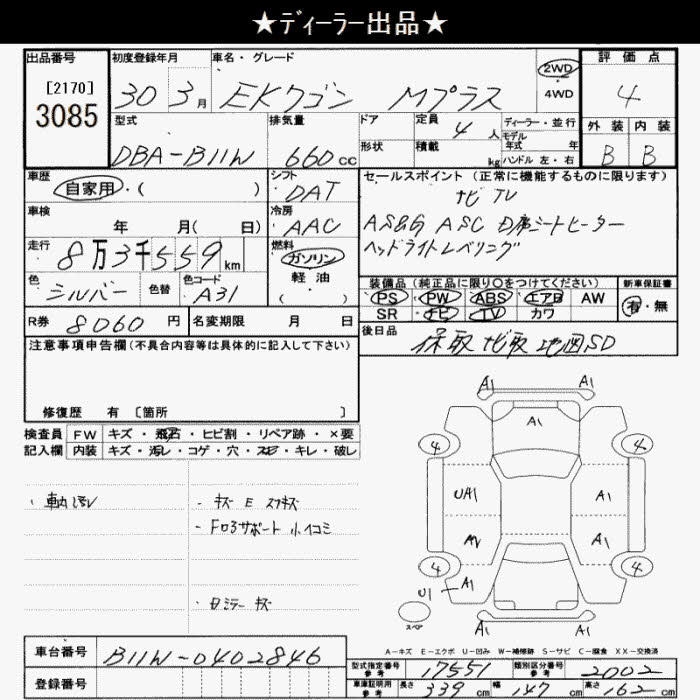 ★ディーラー出品★
出品番号 初度登録年月 車名・グレード 評価点
[2170]
3085
30 3月 EKワゴン Mプラス 2WD 4WD 4
型式 排気量 ドア 定員 4人 ディーラー・並行 外装 内装
モデル年式 年
DBA-B11W 660cc 形状 積載 kg ハンドル 左・右 B B
車歴 シフト セールスポイント (正常に機能するものに限ります)
自家用・( ) DAT ナビ TV
車検 冷房
年 月( 日) AAC ASG ASC D席シートヒーター
走行 燃料 ヘッドライトレベリング
8万3千559km ガソリン
軽油
( )
色 色替 色コード 装備品 (純正品に限り○をつけてください) 新車保証書
シルバー A31 PS PW ABS エアB AW 有・無
SR ナビ TV カワ
R券 8060円 名変期限 月 日 後日品
保取 ナビ取 地図SD
注意事項申告欄(不具合内容等は具体的に記入して下さい)
修復歴 有 [箇所 ]
検査員 FW キズ・飛石・ヒビ割・リペア跡・×要
記入欄 内装 キズ・汚レ・コゲ・穴・スレ・キレ・破レ
・車内汚レ
・キズ E スリキズ
・Fロアサポート 小ヘコミ
・Dミラー キズ
A1 A1
A1
4 4
UA1 A1
A1
4 4
U1 A1
スペア
A1 A1
A-キズ E-エクボ U-凹み W-補修跡 S-サビ C-腐食 XX-交換済
車台番号 B11W-0402846
型式指定番号 参考 17551 類別区分番号 参考 2002
登録番号
車庫証明用 参考 長さ 339cm 幅 147cm 高さ 162cm